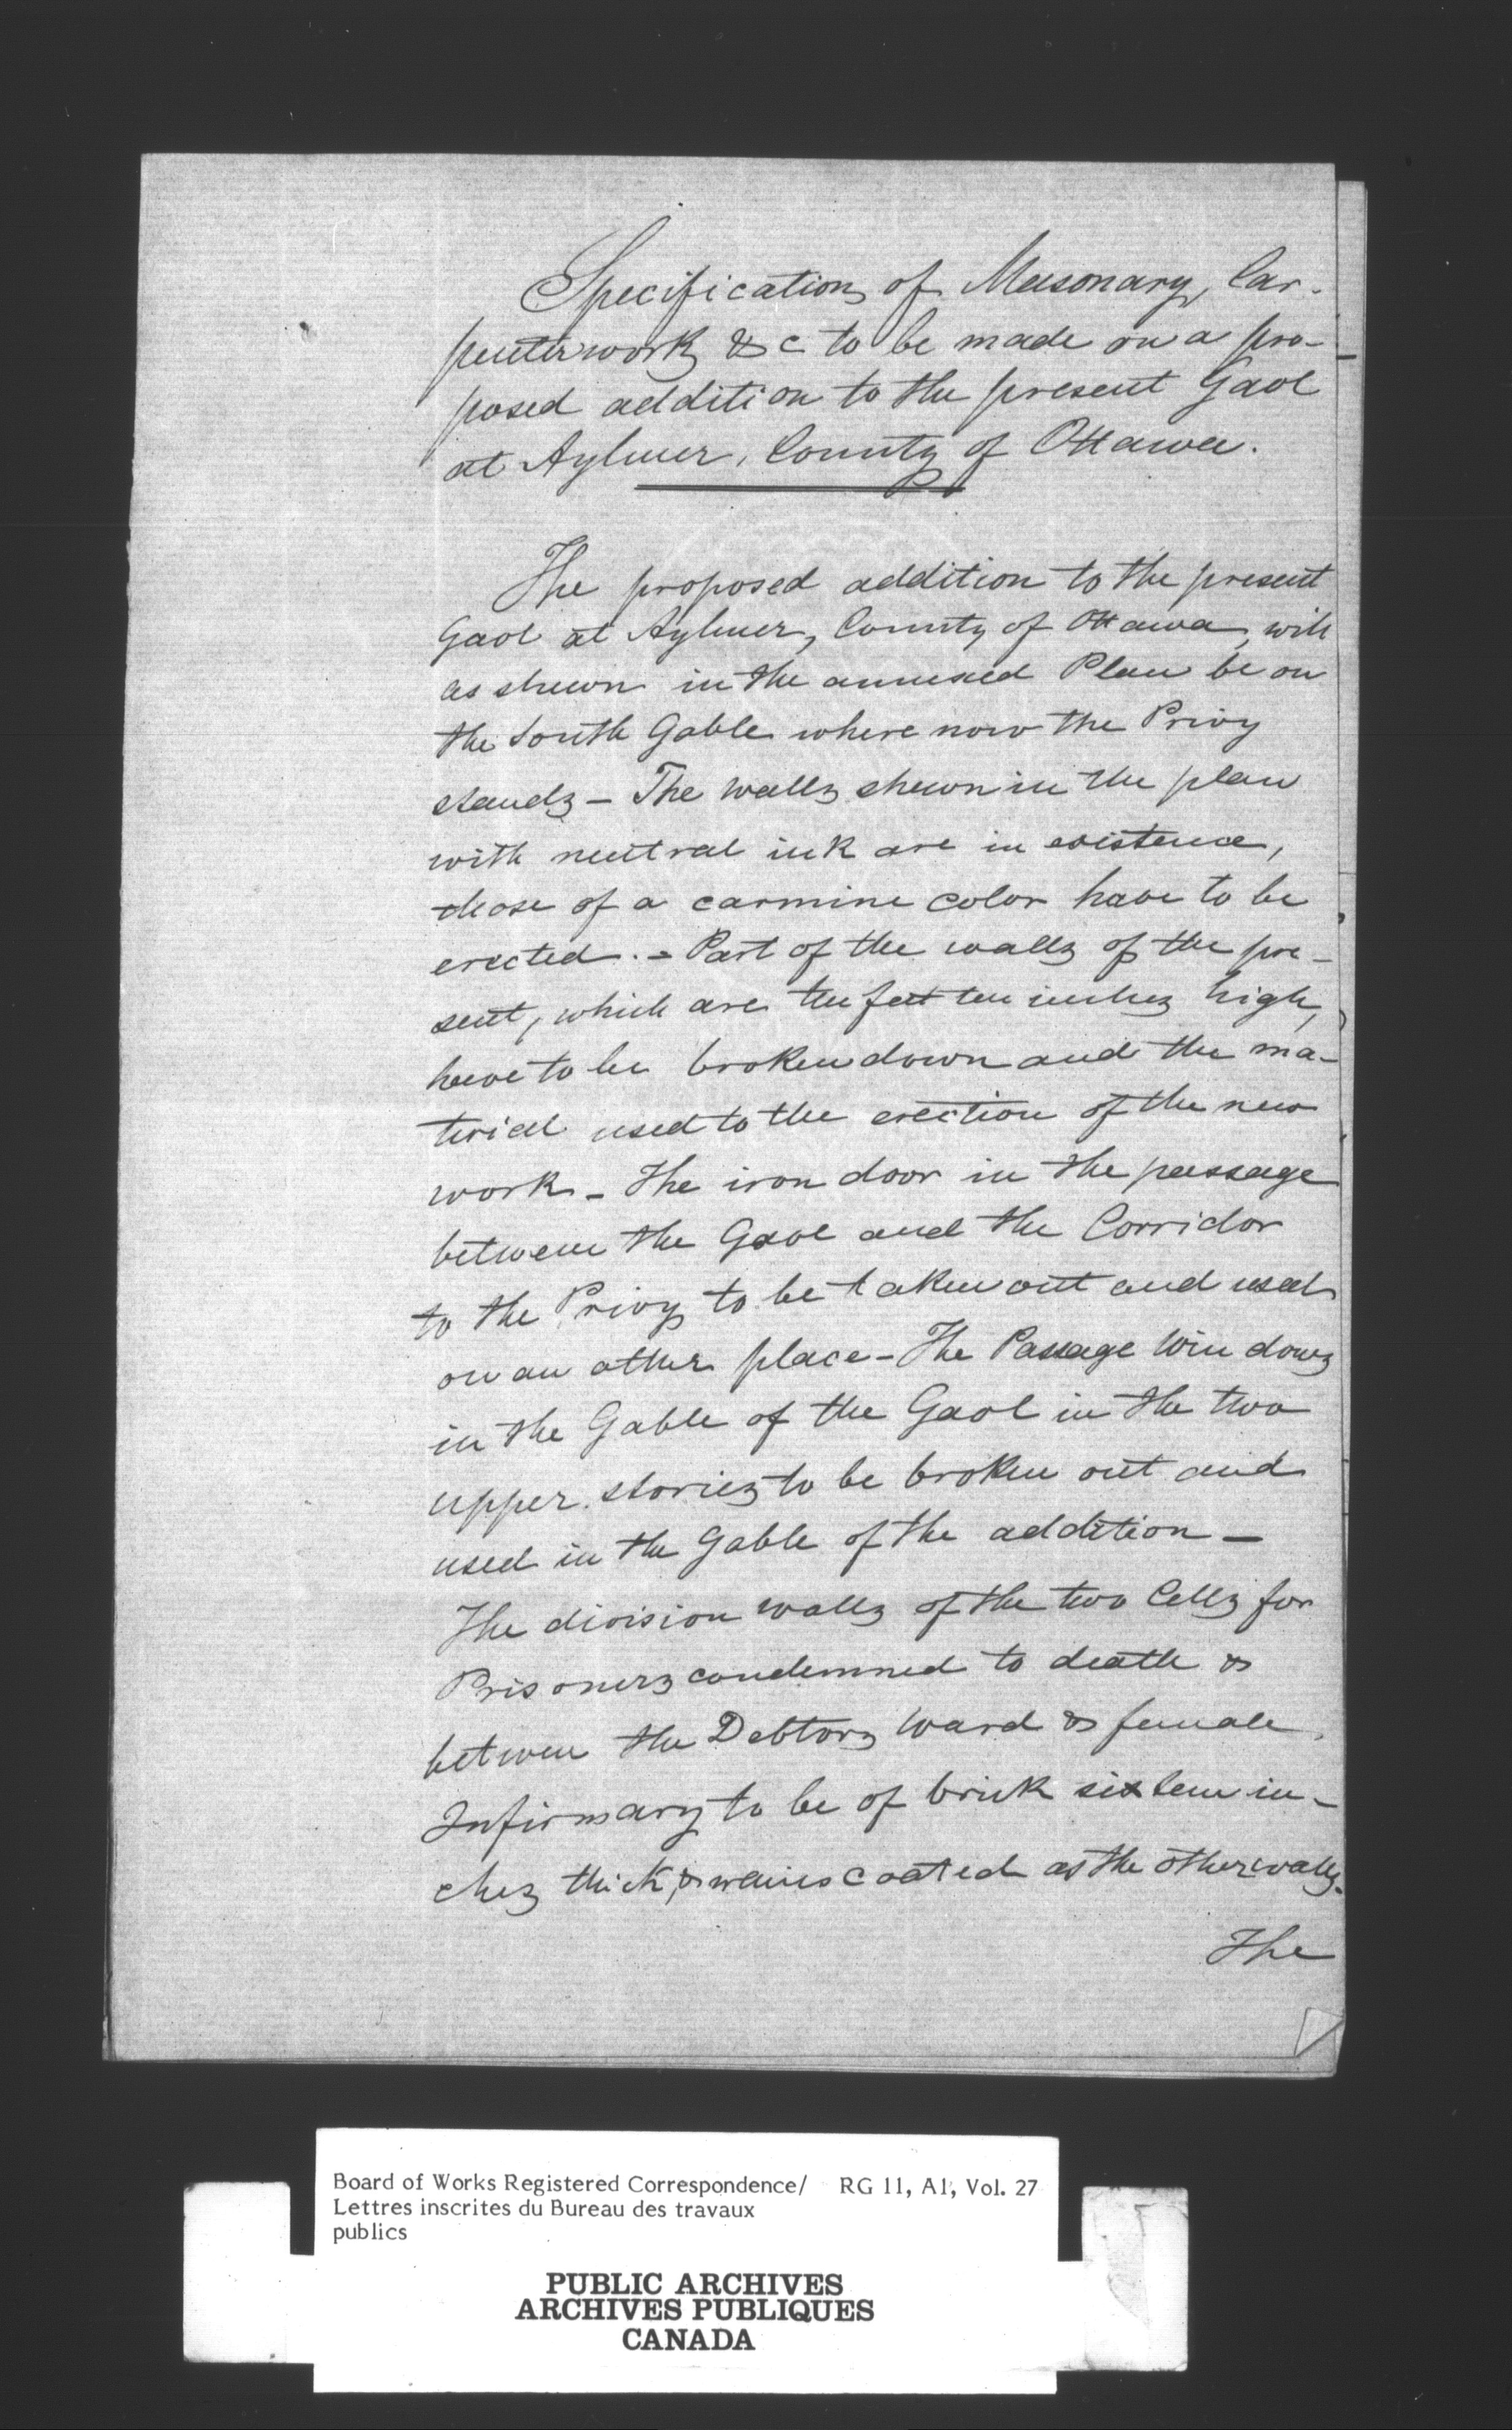 Specification of Masonary, Car-
penterwork & c to be made on a pro-
posed addition to the present Gaol
at Aylmer, County of Ottawa.
The proposed addition to the present
Gaol at Aylmer, County of Ottawa, will
as shewn in the annexed Plan be on
the South Gable where now the Privy
stands – The walls shewn in the plan
with neutral ink are in existence,
those of a carmine color have to be
erected. – Part of the walls of the pre-
sent, which are ten feet ten inches high,
have to be broken down and the ma-
terial used to the erection of the new
work – The iron door in the passage
between the Gaol and the Corridor
to the Privy to be taken out and used
on an other place – The Passage Windows
in the Gable of the Gaol in the two
upper stories to be broken out and
used in the Gable of the addition –
The division walls of the two Cells for
Prisoners condemned to death &
between the Debtors ward & female
Infirmary to be of brick sixteen in-
ches thick, & wainscoated as the other walls.
The
Board of Works Registered Correspondence/ RG 11, A1, Vol. 27
Lettres inscrites du Bureau des travaux
publics
PUBLIC ARCHIVES
ARCHIVES PUBLIQUES
CANADA